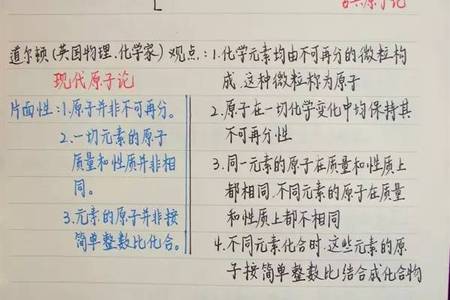 道尔顿(英国物理、化学家)观点:1.化学元素均由不可再分的微粒构
成.这种微粒称为原子
现代原子论
片面性:1.原子并非不可再分。
2.一切元素的原子
质量和性质并非相
同。
3.元素的原子并非按
简单整数比化合。
2.原子在一切化学变化中均保持其
不可再分性
3.同一元素的原子在质量和性质上
都相同.不同元素的原子在质量
和性质上都不相同
4.不同元素化合时.这些元素的原
子按简单整数比结合成化合物